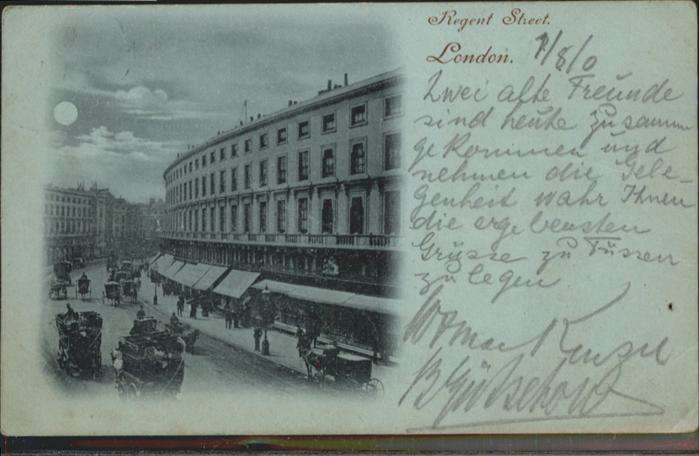 Regent Street.
London.
1/8/0
Zwei alte Freunde
sind heute zusamm
gekommen und
nehmen die Gele-
genheit wahr Ihnen
die ergebensten
Grüsse zu Füssen
zu legen